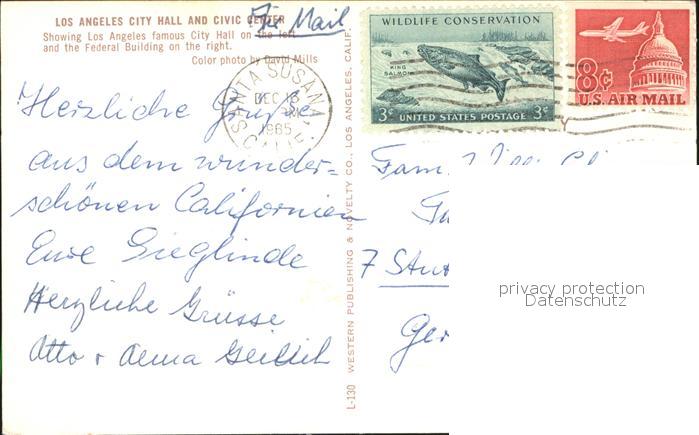 LOS ANGELES CITY HALL AND CIVIC CENTER
Showing Los Angeles famous City Hall on the left
and the Federal Building on the right.
Color photo by David Mills
Air Mail
WILDLIFE CONSERVATION
KING
SALMON
3¢ UNITED STATES POSTAGE 3¢
8¢
U.S. AIR MAIL
SANTA SUSANA
DEC
1965
CALIF.
Herzliche Grüße
aus dem wunder-
schönen Californien
Eure Sieglinde
Herzliche Grüsse
Otto +
L-130 WESTERN PUBLISHING & NOVELTY CO., LOS ANGELES, CALIF.
Fam.
7 Stut
Ger
privacy protection
Datenschutz